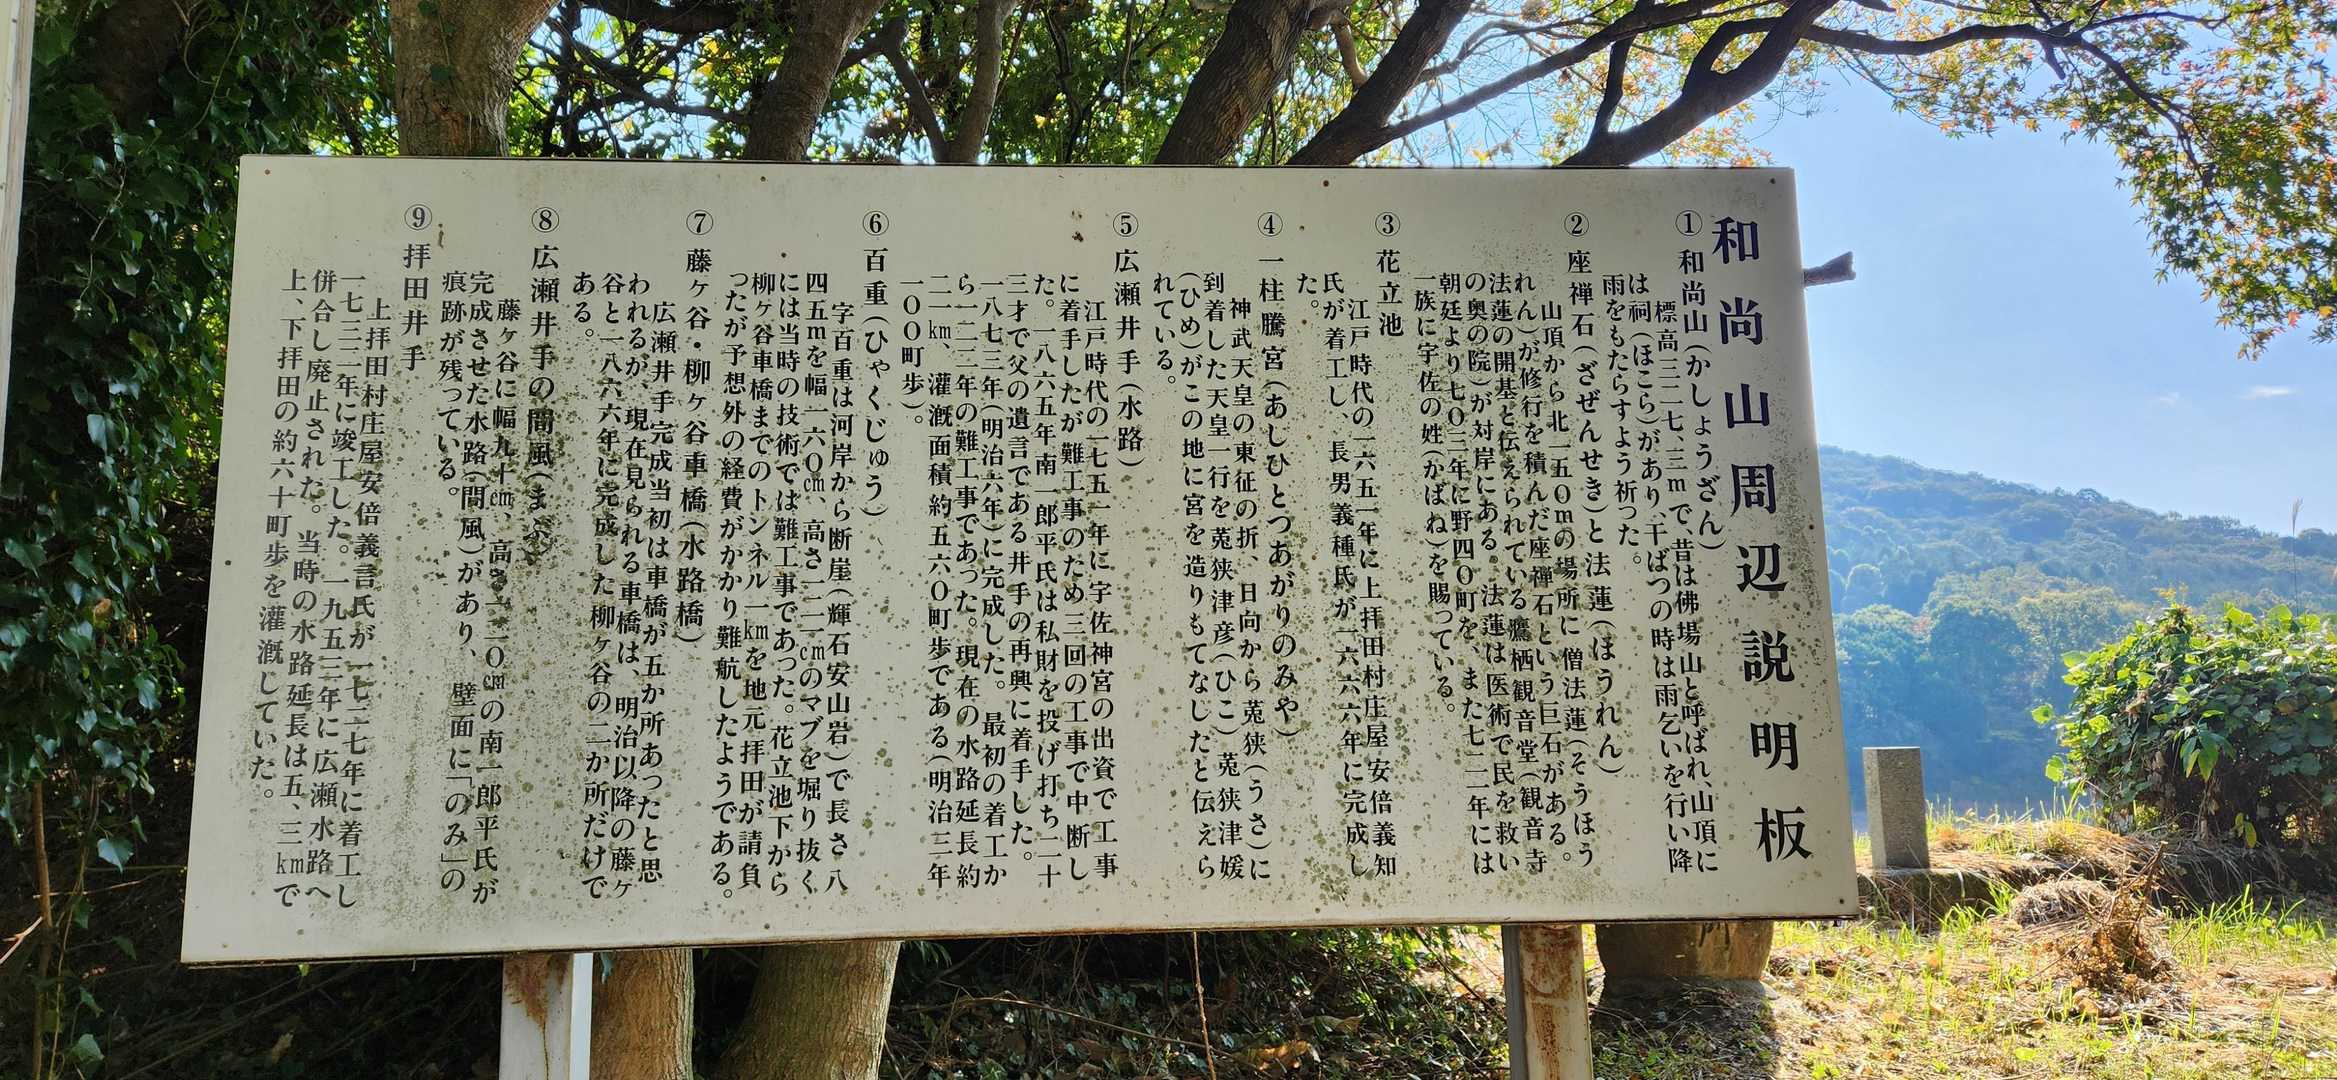 和尚山周辺説明板
①和尚山(かしょうざん)
標高三二七、三mで、昔は佛場山と呼ばれ、山頂に
は祠(ほこら)があり、干ばつの時は雨乞いを行い降
雨をもたらすよう祈った。
②座禅石(ざぜんせき)と法蓮(ほうれん)
山頂から北一五〇mの場所に僧法蓮(そうほう
れん)が修行を積んだ座禅石という巨石がある。
法蓮の開基と伝えられている鷹栖観音堂(観音寺
の奥の院)が対岸にある。法蓮は医術で民を救い
朝廷より七〇三年に野四〇町を、また七二一年には
一族に宇佐の姓(かばね)を賜っている。
③花立池
江戸時代の一六五一年に上拝田村庄屋安倍義知
氏が着工し、長男義種氏が一六六六年に完成し
た。
④一柱騰宮(あしひとつあがりのみや)
神武天皇の東征の折、日向から菟狭(うさ)に
到着した天皇一行を菟狭津彦(ひこ)菟狭津媛
(ひめ)がこの地に宮を造りもてなしたと伝えら
れている。
⑤広瀬井手(水路)
江戸時代の一七五一年に宇佐神宮の出資で工事
に着手したが難工事のため三回の工事で中断し
た。一八六五年南一郎平氏は私財を投げ打ち二十
三才で父の遺言である井手の再興に着手した。
一八七三年(明治六年)に完成した。最初の着工か
ら一二三年の難工事であった。現在の水路延長約
二一km、灌漑面積約五六〇町歩である(明治三年
一〇〇町歩)。
⑥百重(ひゃくじゅう)
字百重は河岸から断崖(輝石安山岩)で長さ八
四五mを幅一六〇cm、高さ二二一cmのマブを堀り抜く
には当時の技術では難工事であった。花立池下から
柳ヶ谷車橋までのトンネル一kmを地元拝田が請負
ったが予想外の経費がかかり難航したようである。
⑦藤ヶ谷・柳ヶ谷車橋(水路橋)
広瀬井手完成当初は車橋が五か所あったと思
われるが、現在見られる車橋は、明治以降の藤ヶ
谷と一八六六年に完成した柳ヶ谷の二か所だけで
ある。
⑧広瀬井手の間風(まぶ)
藤ヶ谷に幅九十cm、高さ一二〇cmの南一郎平氏が
完成させた水路(間風)があり、壁面に「のみ」の
痕跡が残っている。
⑨拝田井手
上拝田村庄屋安倍義言氏が一七二七年に着工し
一七三二年に竣工した。一九五三年に広瀬水路へ
併合し廃止された。当時の水路延長は五、三kmで
上、下拝田の約六十町歩を灌漑していた。